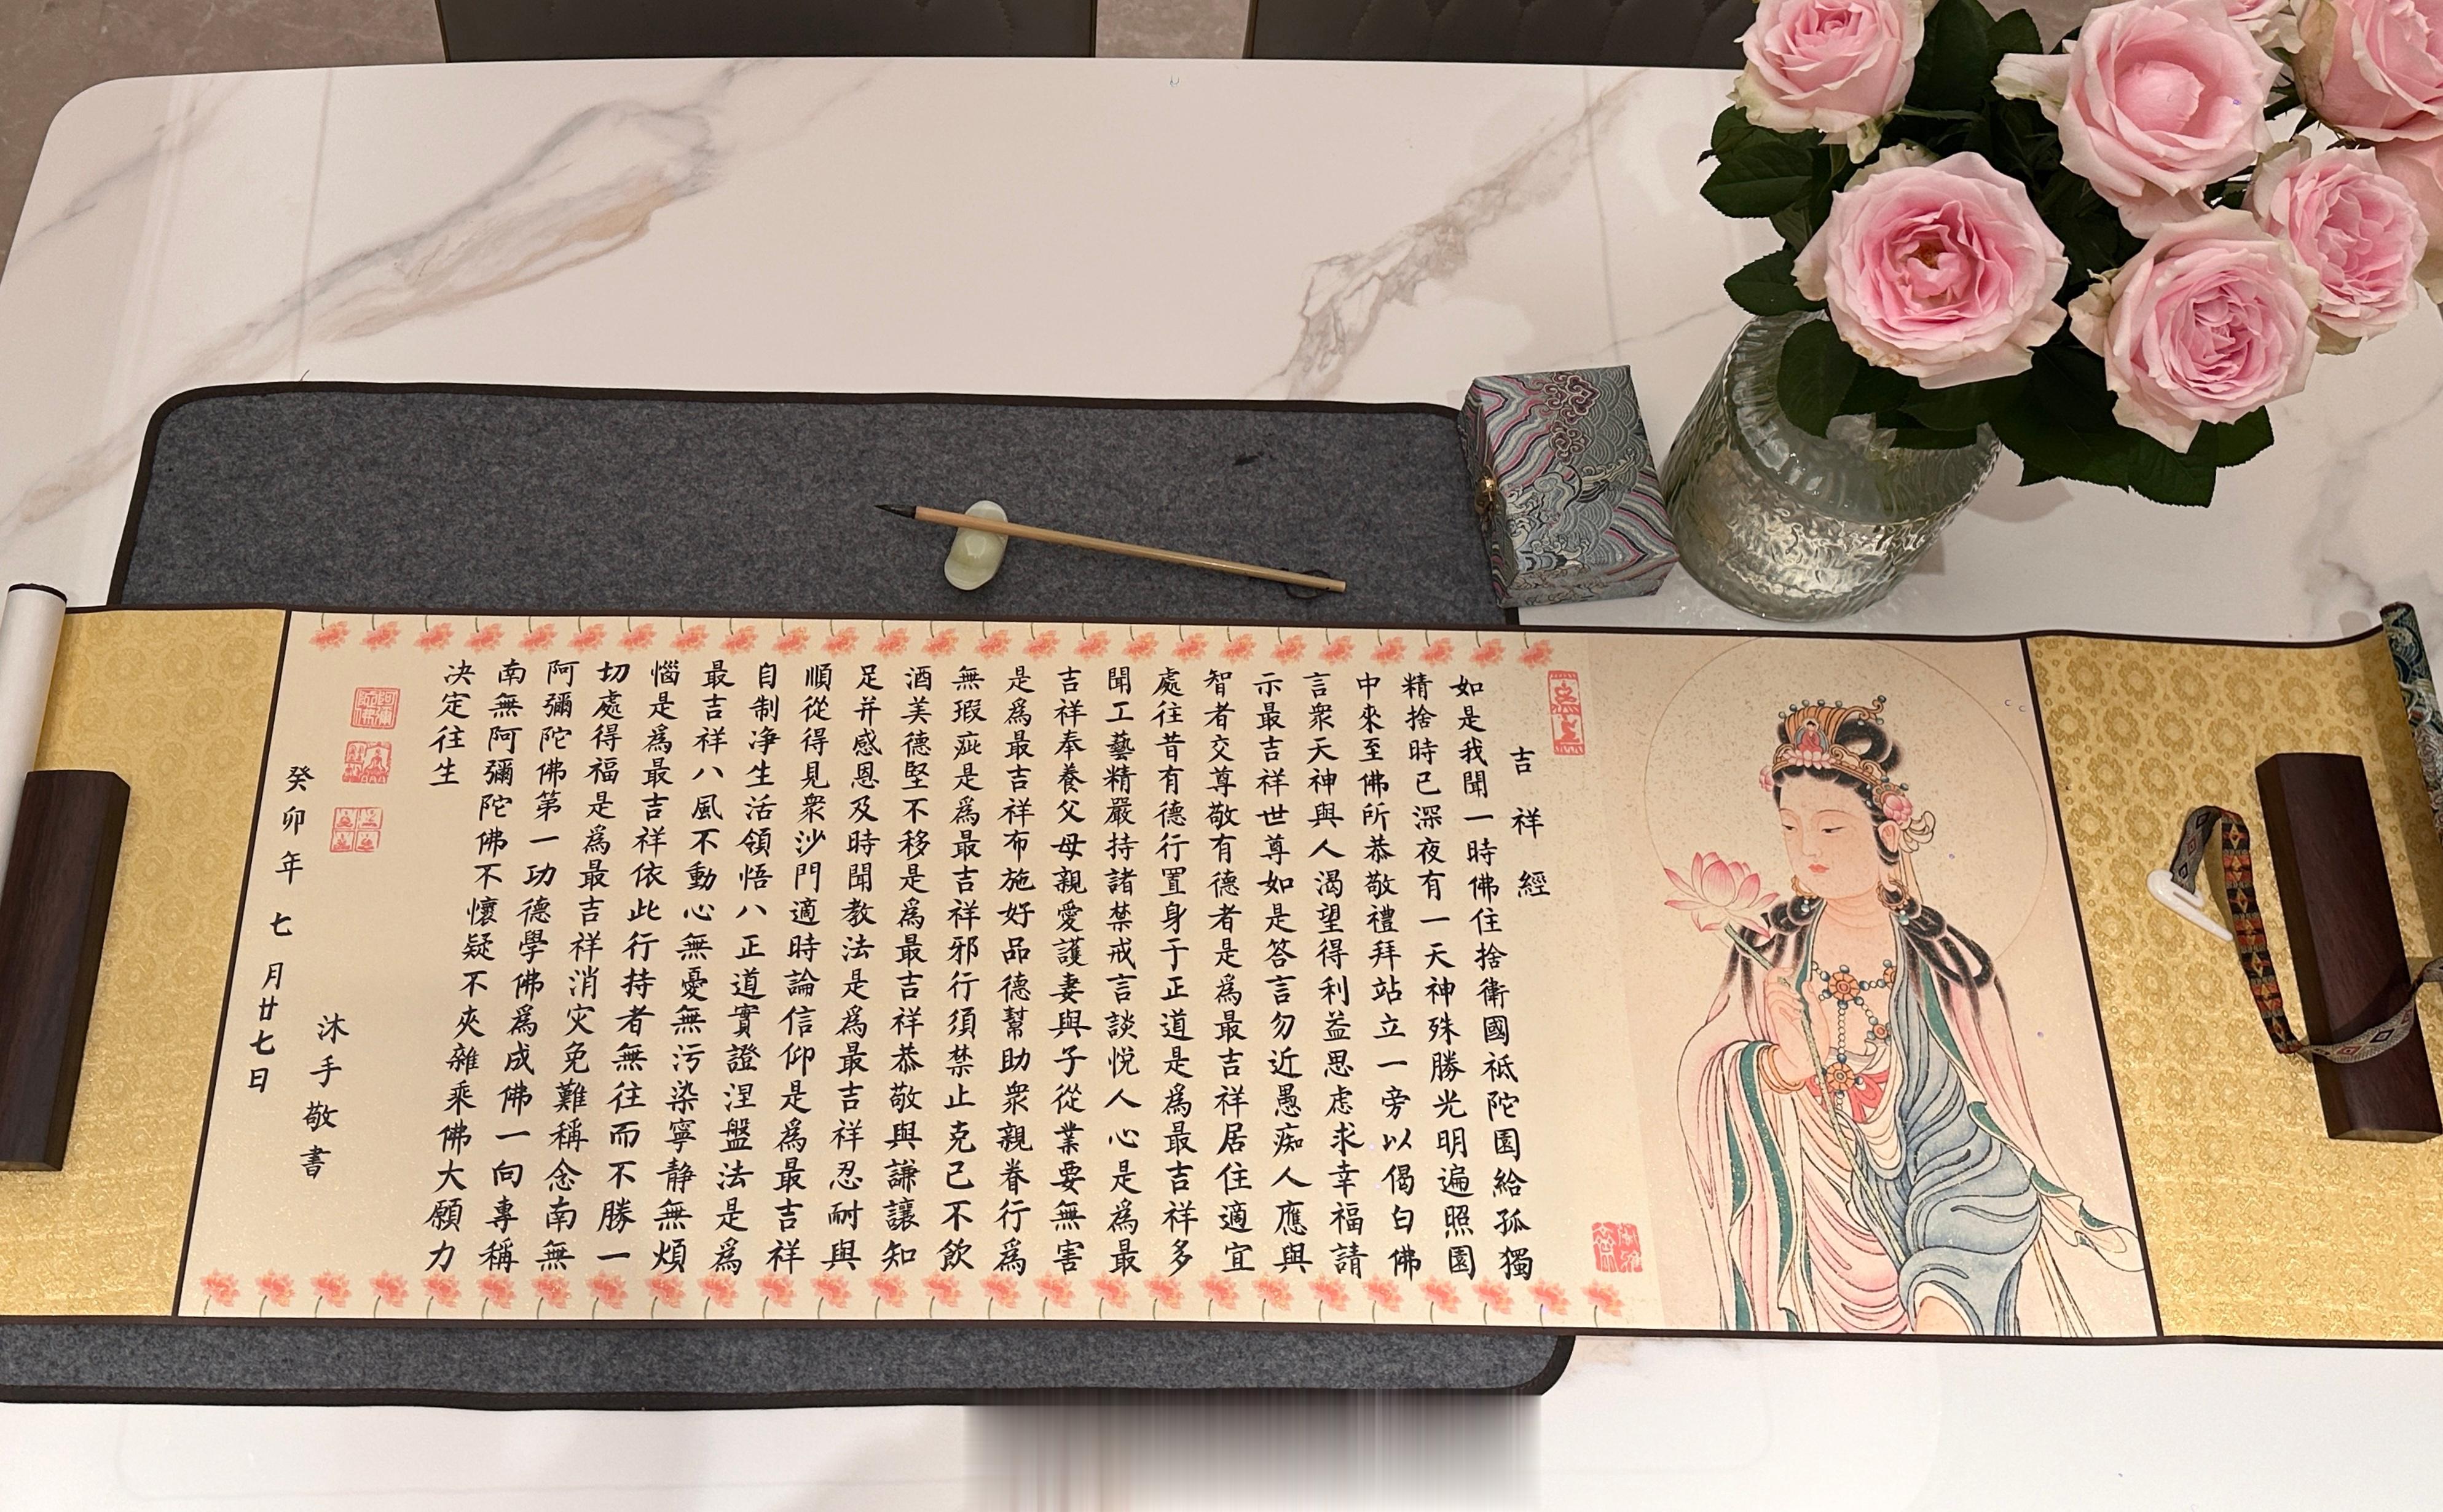 吉祥經
如是我聞一時佛住捨衛國祇陀園給孤獨
精捨時已深夜有一天神殊勝光明遍照園
中來至佛所恭敬禮拜站立一旁以偈白佛
言衆天神與人渴望得利益思虑求幸福請
示最吉祥世尊如是答言勿近愚痴人應與
智者交尊敬有德者是爲最吉祥居住適宜
處往昔有德行置身于正道是爲最吉祥多
聞工藝精嚴持諸禁戒言談悦人心是爲最
吉祥奉養父母親愛護妻與子從業要無害
是爲最吉祥布施好品德幫助衆親眷行爲
無瑕疵是爲最吉祥邪行須禁止克己不飲
酒美德堅不移是爲最吉祥恭敬與謙讓知
足并感恩及時聞教法是爲最吉祥忍耐與
順從得見衆沙門適時論信仰是爲最吉祥
自制净生活領悟八正道實證涅盤法是爲
最吉祥八風不動心無憂無污染寧静無煩
惱是爲最吉祥依此行持者無往而不勝一
切處得福是爲最吉祥消灾免難稱念南無
阿彌陀佛第一功德學佛爲成佛一向專稱
南無阿彌陀佛不懷疑不夾雜乘佛大願力
决定往生
阿彌陀佛
沐手敬書
癸卯年七月廿七日